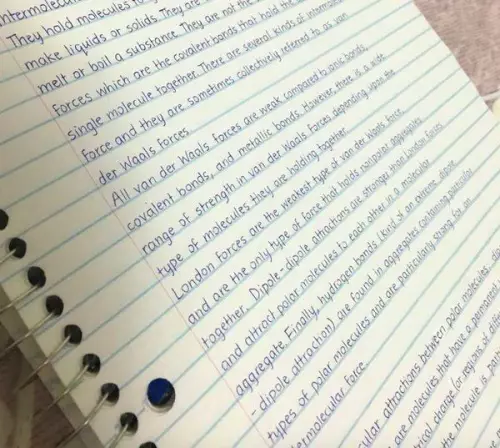 intermolecul
They hold molecules to
make liquids or solids. They are
melt or boil a substance. They are not the
forces which are the covalent bonds that hold the
single molecule together. There are several kinds of intermolec
force and they are sometimes collectively referred to as van
der Waals forces.
All van der Waals forces are weak compared to ionic bonds,
covalent bonds, and metallic bonds. However, there is a wide
range of strength in van der Waals forces depending upon the
type of molecules they are holding together.
London forces are the weakest type of van der Waals force
and are the only type of force that holds nonpolar aggregates
together. Dipole-dipole attractions are stronger than London forces
and attract polar molecules to each other in a molecular
aggregate. Finally, hydrogen bonds (kind of an extreme dipole
-dipole attraction) are found in aggregates containing particular
types of polar molecules and are particularly strong for an
termolecular force.
ular attractions between polar molecules
are molecules that have a permanent
tial charge for regions of
e molecule is